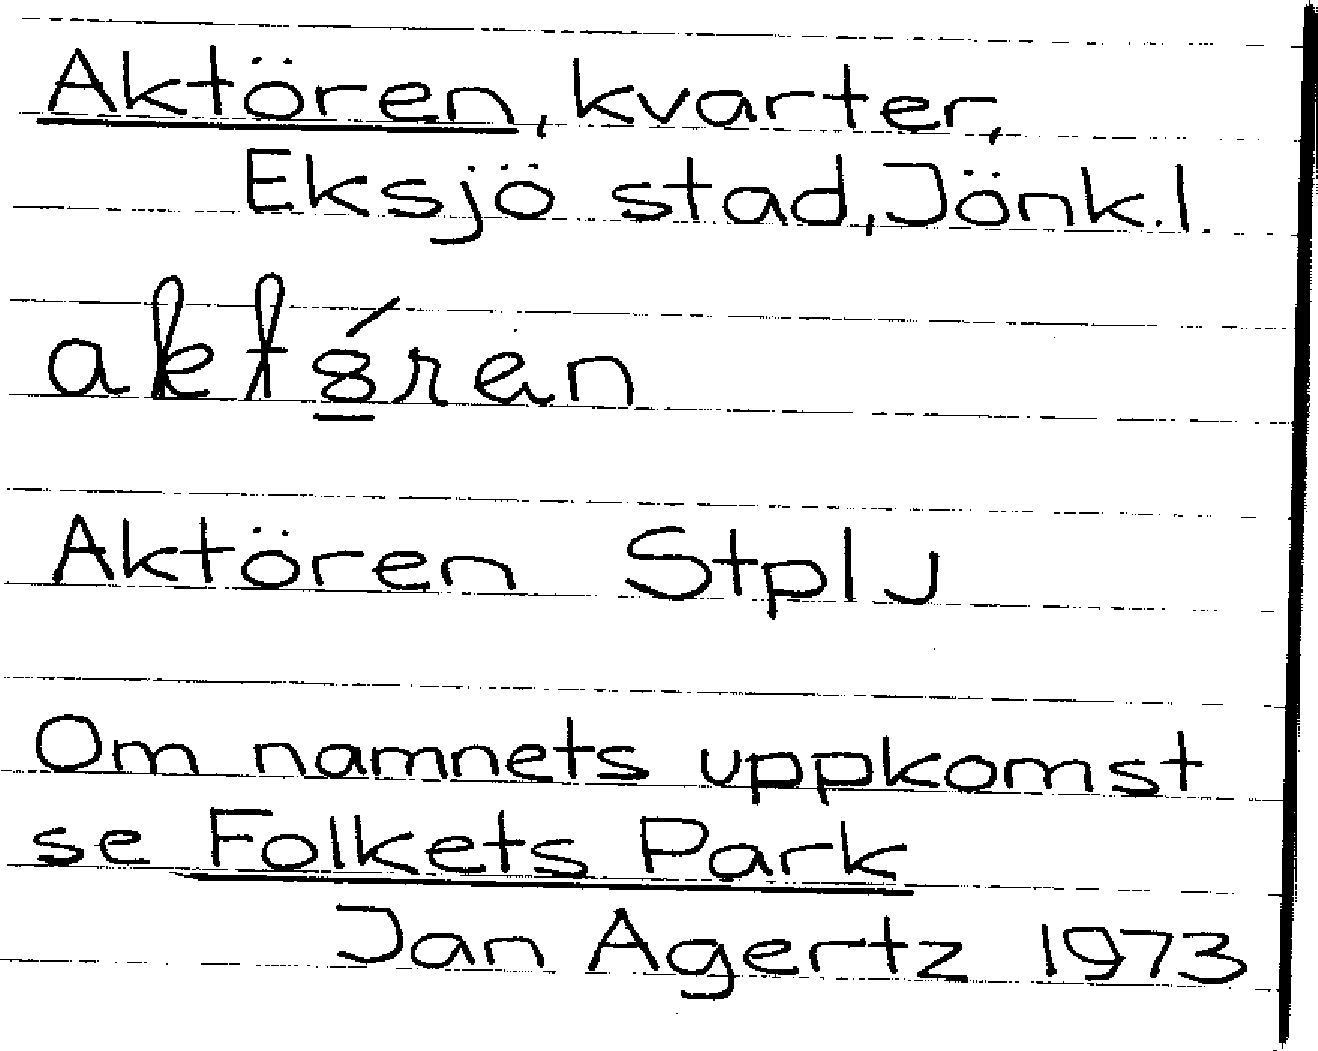 Aktören, kvarter,
Eksjö stad, Jönk.l.
aktȣ́rən
Aktören Stpl J
Om namnets uppkomst
se Folkets Park
Jan Agertz 1973